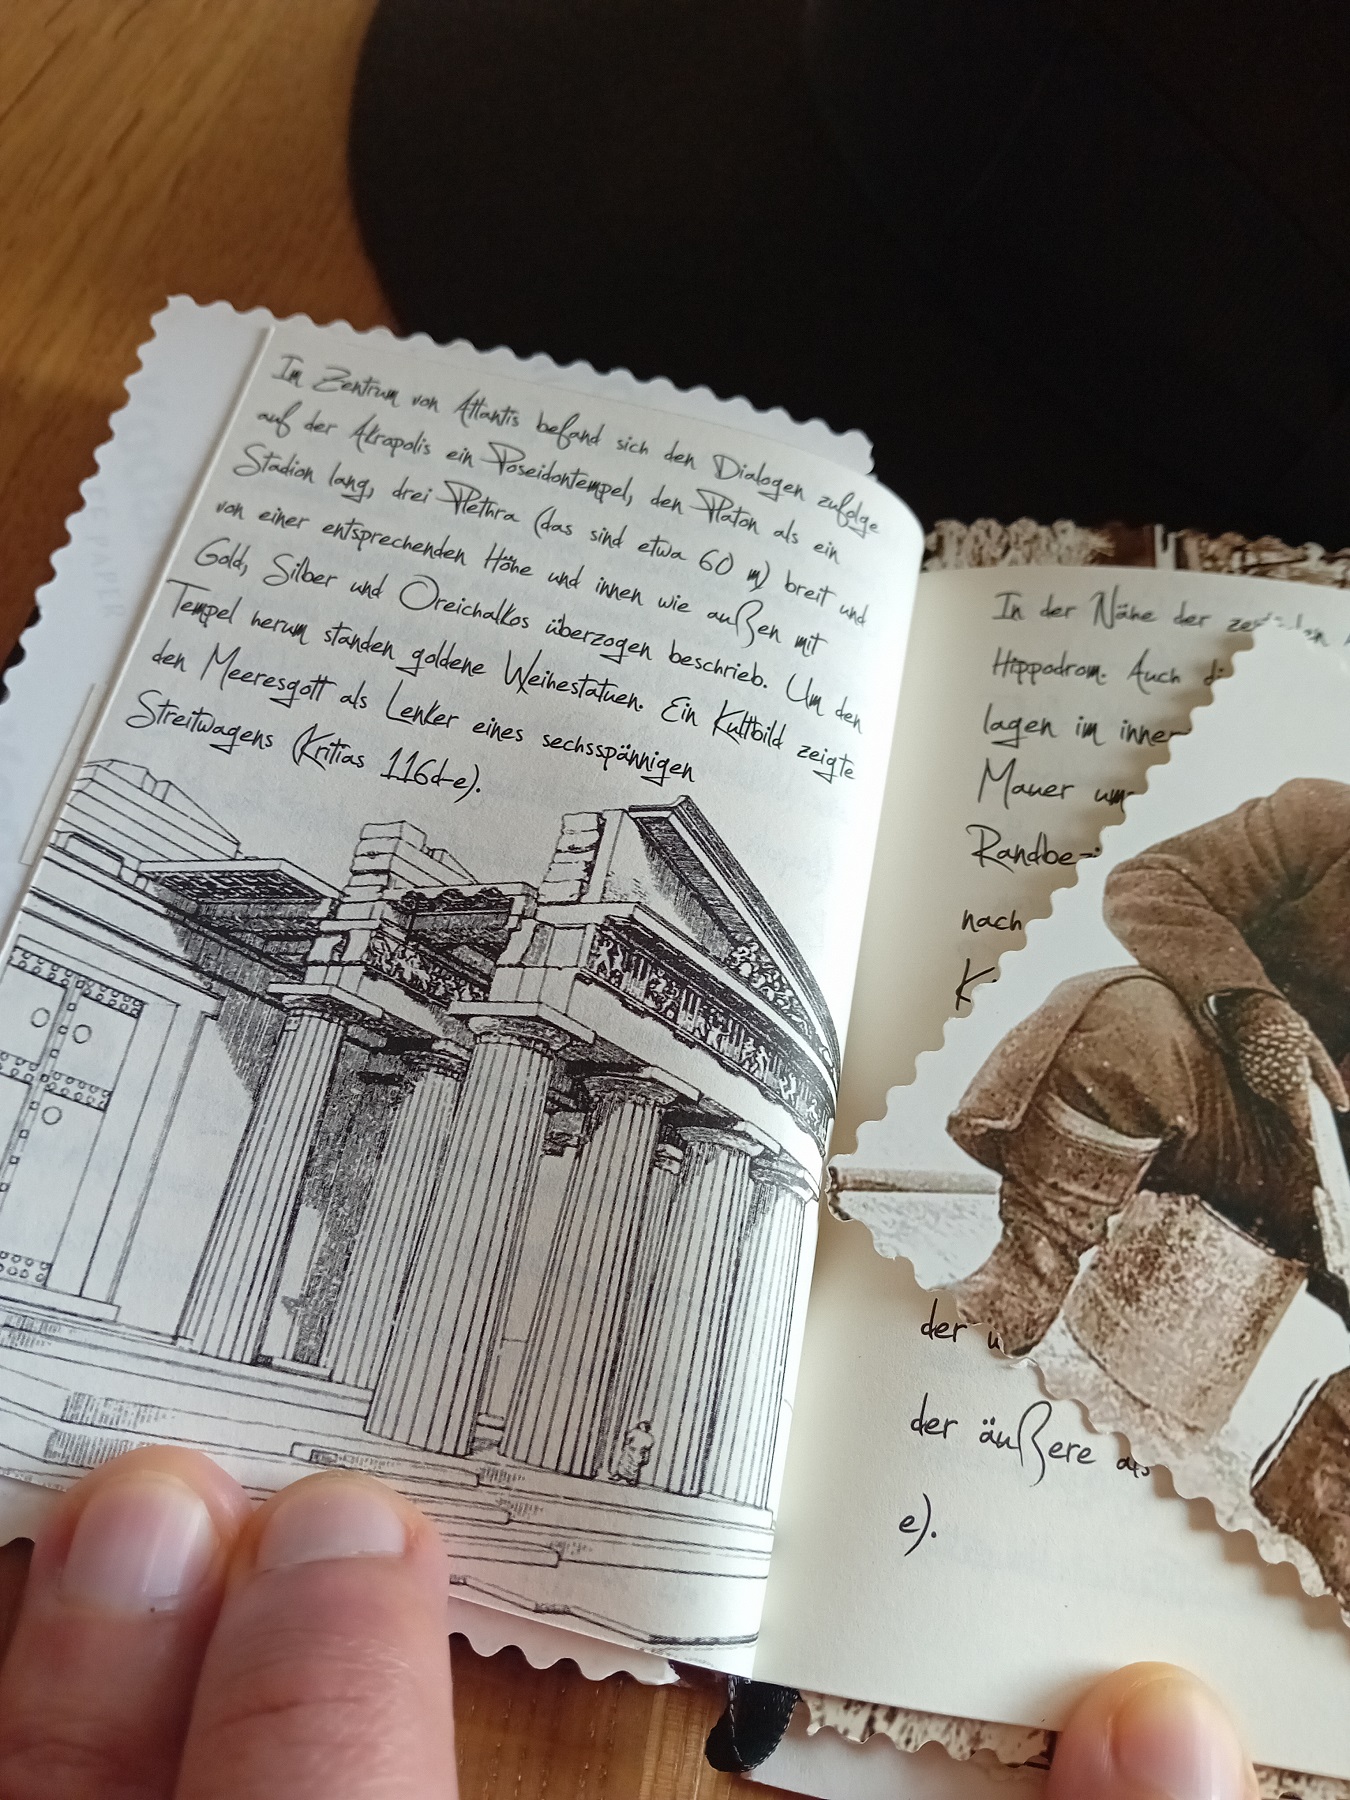 Im Zentrum von Atlantis befand sich den Dialogen zufolge
auf der Akropolis ein Poseidontempel, den Platon als ein
Stadion lang, drei Plethra (das sind etwa 60 m) breit und
von einer entsprechenden Höhe und innen wie außen mit
Gold, Silber und Oreichalkos überzogen beschrieb. Um den
Tempel herum standen goldene Weihestatuen. Ein Kultbild zeigte
den Meeresgott als Lenker eines sechsspännigen
Streitwagens (Kritias 116d-e).
In der Nähe der
Hippodrom. Auch
lagen im
Mauer
nach
K
der
der äußere als
e).